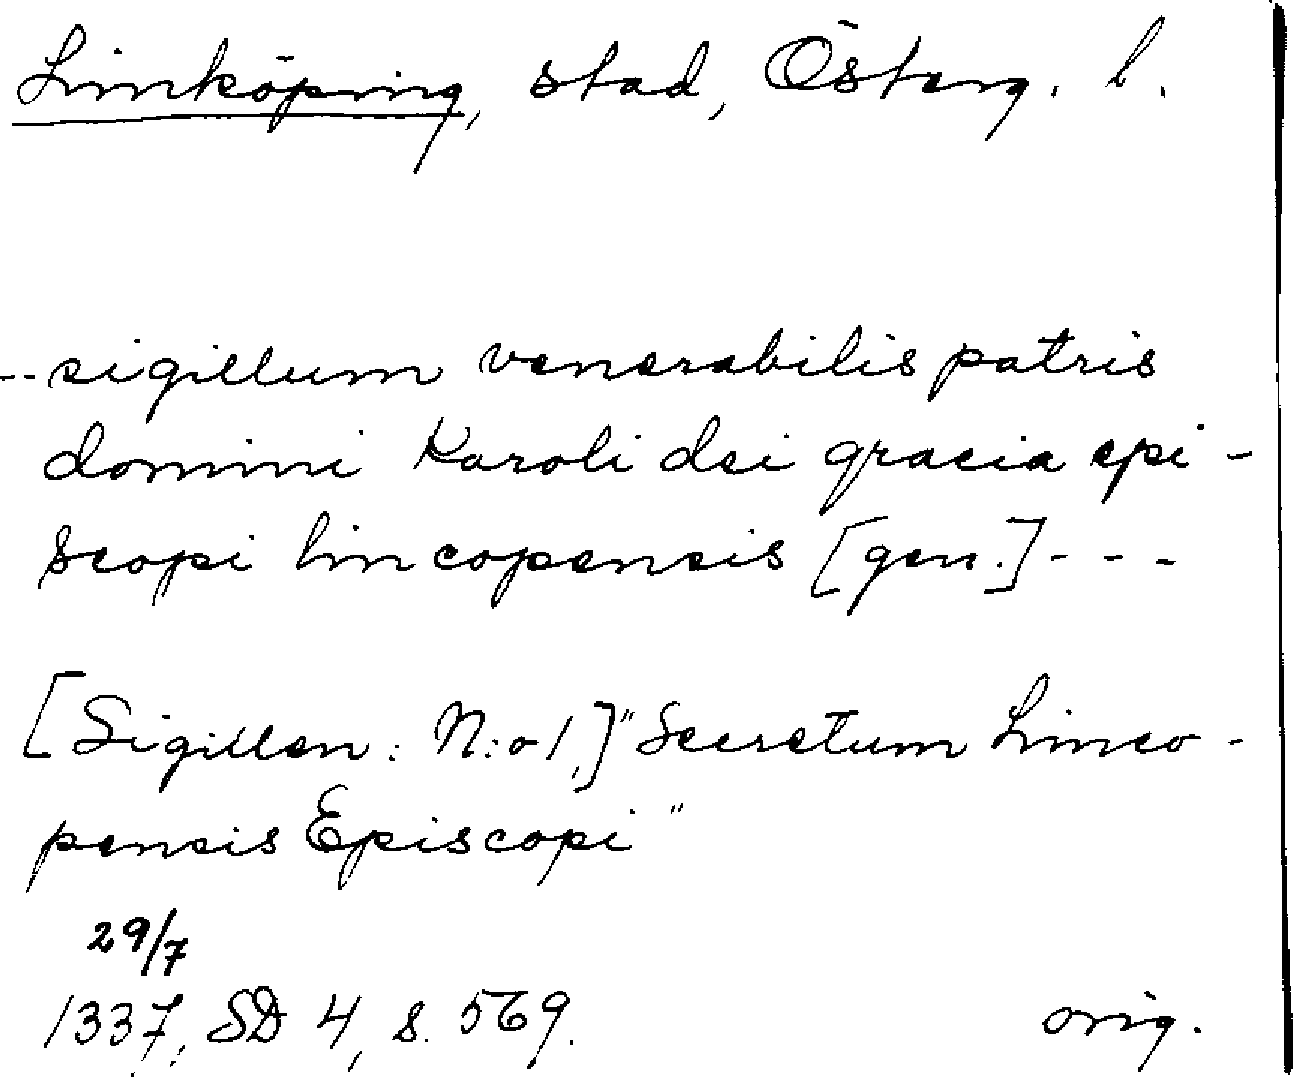 Linköping, stad, Österg. l.
-- sigillum venerabilis patris
domini Karoli dei gracia epi-
scopi lincopensis [gen.] - - -
[Sigillen: N:o 1,] "Secretum Linco-
pensis Episcopi"
29/7
1337, SD 4, s. 569. orig.